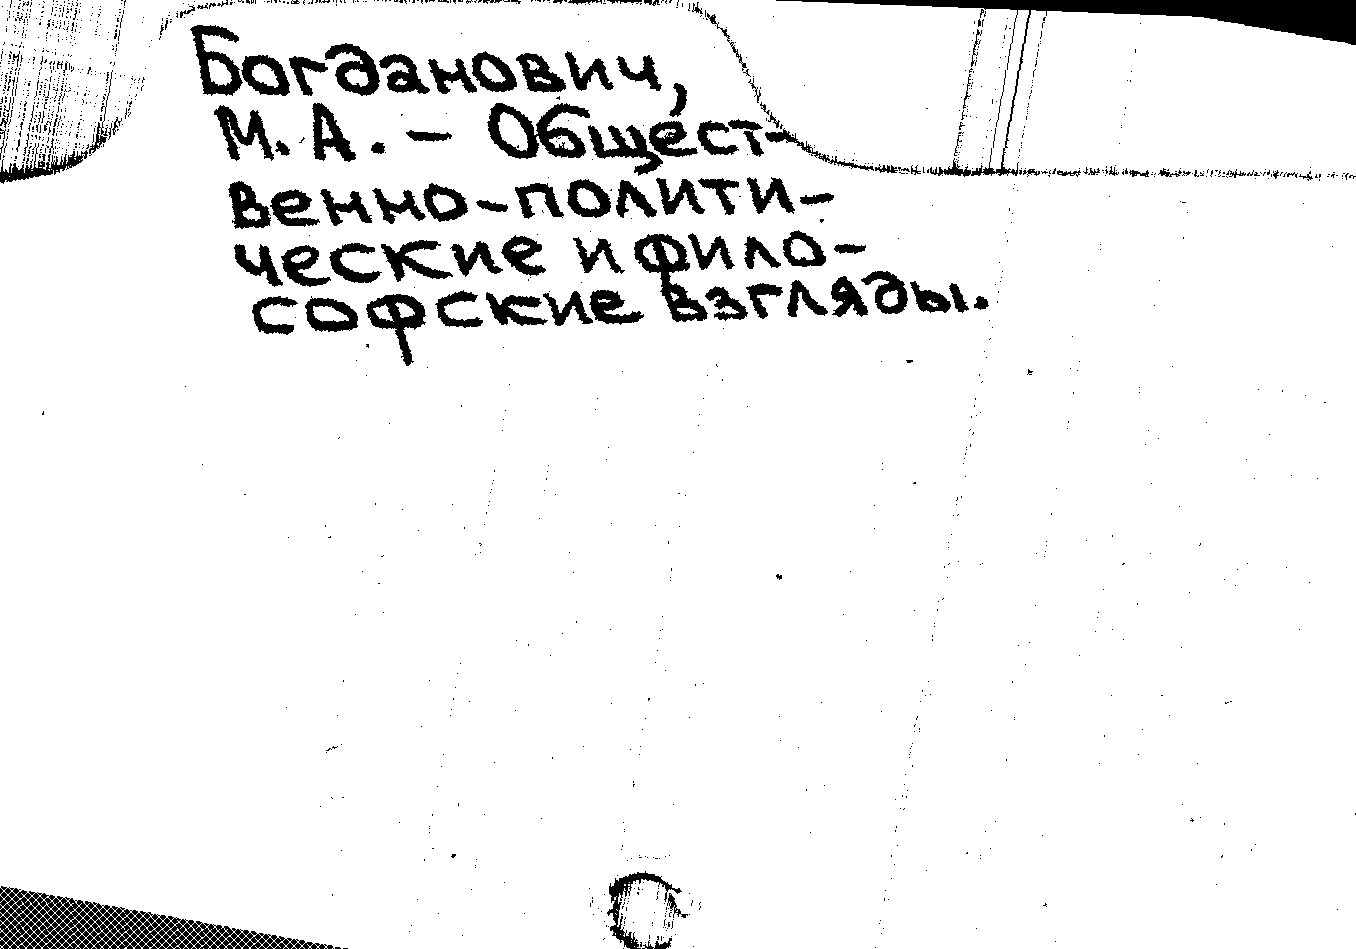 Богданович,
М. А. – Общест-
венно-полити-
ческие и фило-
софские взгляды.